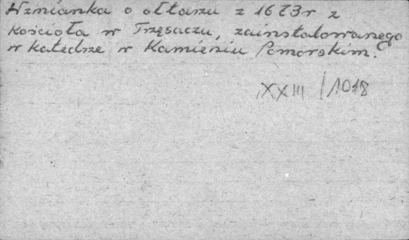 Wzmianka o ołtarzu z 1673r z
kościoła w Trzęsaczu, zainstalowanego
w katedrze w Kamieniu Pomorskim.
XXIII/1018